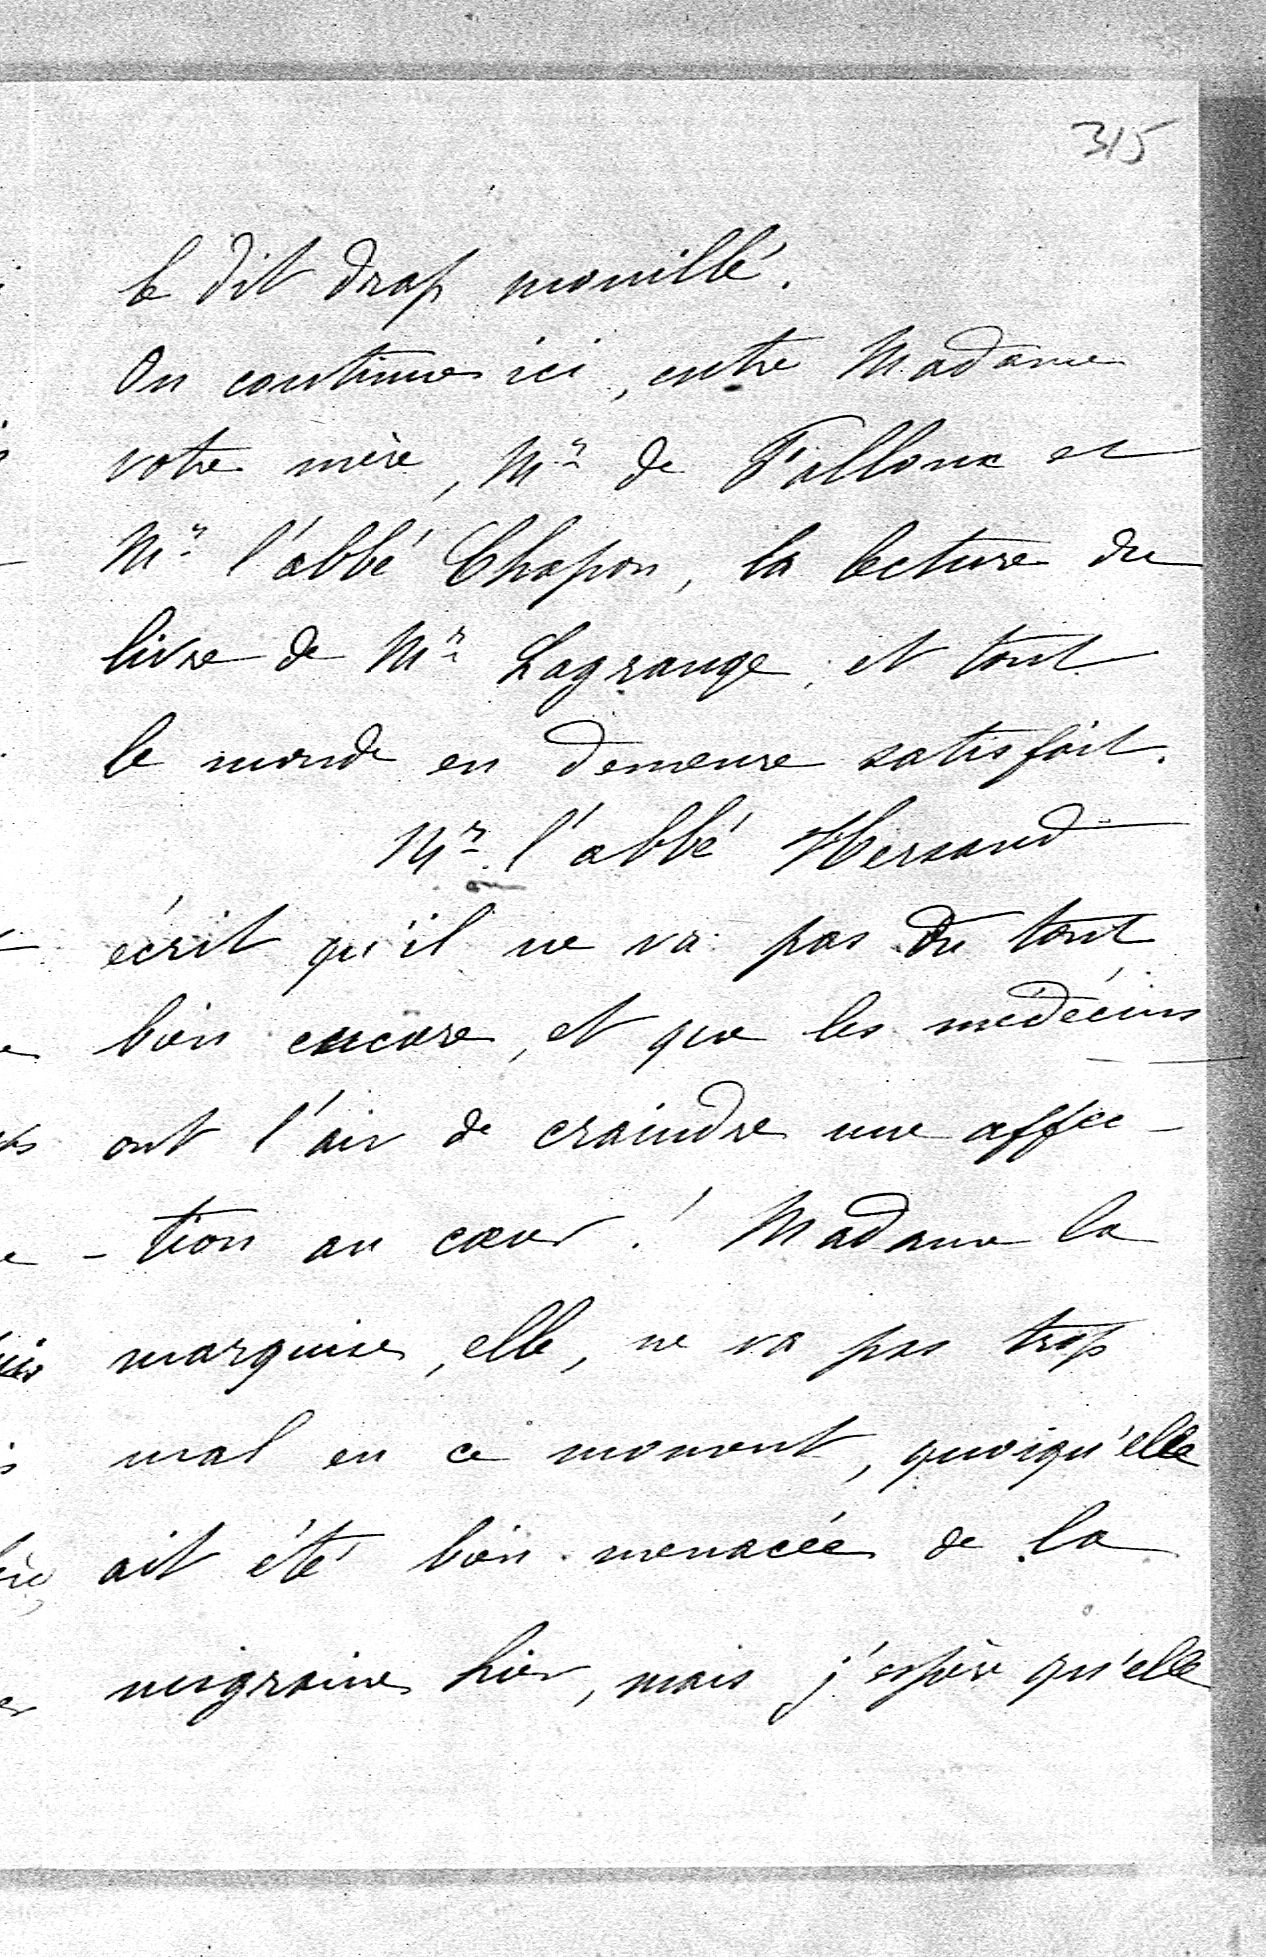 315
le dit drap mouillé.
On continue ici, entre Madame
votre mère, Mr de Falloux et
Mr l'abbé Chapon, la lecture du
livre de Mr Lagrange, et tout
le monde en demeure satisfait.
Mr l'abbé
écrit qu'il ne va pas du tout
bien encore, et que les médecins
ont l'air de craindre une affec-
-tion au cœur! Madame la
marquise, elle, ne va pas trop
mal en ce moment, quoiqu'elle
ait été bien menacée de la
migraine hier, mais j'espère qu'elle